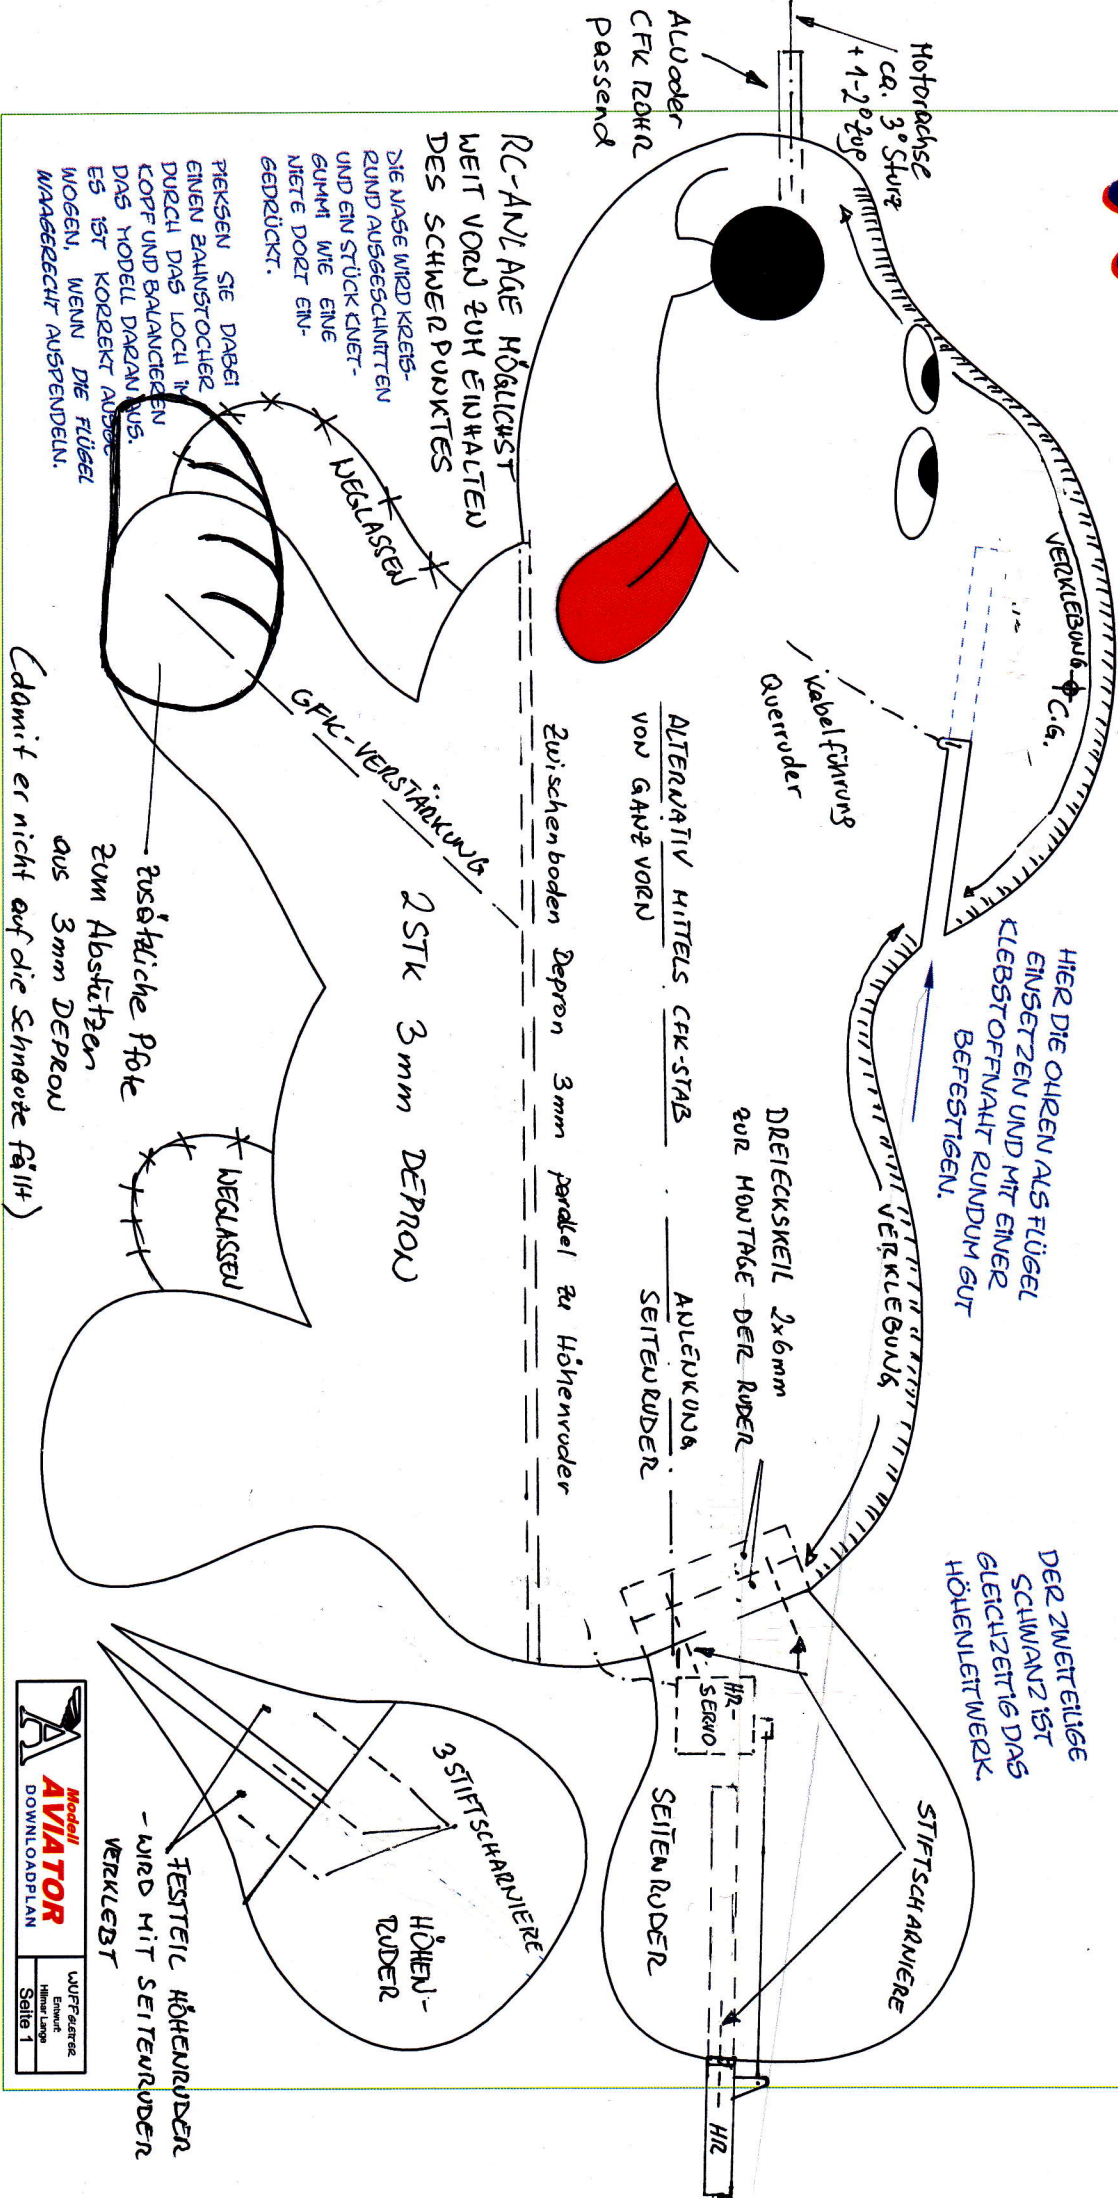 Motorachse
ca. 3° Sturz
+ 1-2° Zug
ALU oder
CFK ROHR
passend
RC-ANLAGE MÖGLICHST
WEIT VORN ZUM EINHALTEN
DES SCHWERPUNKTES
DIE NASE WIRD KREIS-
RUND AUSGESCHNITTEN
UND EIN STÜCK KNET-
GUMMI WIE EINE
NIETE DORT EIN-
GEDRÜCKT.
PIEKSEN SIE DABEI
EINEN ZAHNSTOCHER
DURCH DAS LOCH IM
KOPF UND BALANCIEREN
DAS MODELL DARAN AUS.
ES IST KORREKT AUSGE
WOGEN, WENN DIE FLÜGEL
WAAGERECHT AUSPENDELN.
WEGLASSEN
VERKLEBUNG
C.G.
Kabelführung
Querruder
HIER DIE OHREN ALS FLÜGEL
EINSETZEN UND MIT EINER
KLEBSTOFFNAHT RUNDUM GUT
BEFESTIGEN.
ALTERNATIV MITTELS CFK-STAB
VON GANZ VORN
ANLENKUNG
SEITENRUDER
Zwischenboden Depron 3mm parallel zu Höhenruder
GFK-VERSTÄRKUNG
2STK 3mm DEPRON
zusätzliche Pfote
zum Abstützen
aus 3mm DEPRON
(damit er nicht auf die Schnauze fällt)
WEGLASSEN
DREIECKSKEIL 2x6mm
ZUR MONTAGE DER RUDER
VERKLEBUNG
DER ZWEITEILIGE
SCHWANZ IST
GLEICHZEITIG DAS
HÖHENLEITWERK.
STIFTSCHARNIERE
HR-
SERVO
SEITENRUDER
HR
3 STIFTSCHARNIERE
HÖHEN-
RUDER
FESTTEIL HÖHENRUDER
- WIRD MIT SEITENRUDER
VERKLEBT
Modell
AVIATOR
DOWNLOADPLAN
WUFFGLEITER
Entwurf:
Hilmar Lange
Seite 1